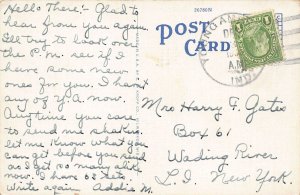 Hello There:- Glad to
hear from you again.
I'll try to look over
the P.M. see if I
have some new
ones for you. I haven't
any of V.A. now.
Anytime you care
to send me
let me know what You
can get before you send
as I got so many alike
now. I have 62 sets.
Write again. Addie M.
26760N
POST
CARD
IND.
A.M.
1
Mrs Harry F. Gates
Box 61
Wading River
L.I. New York.